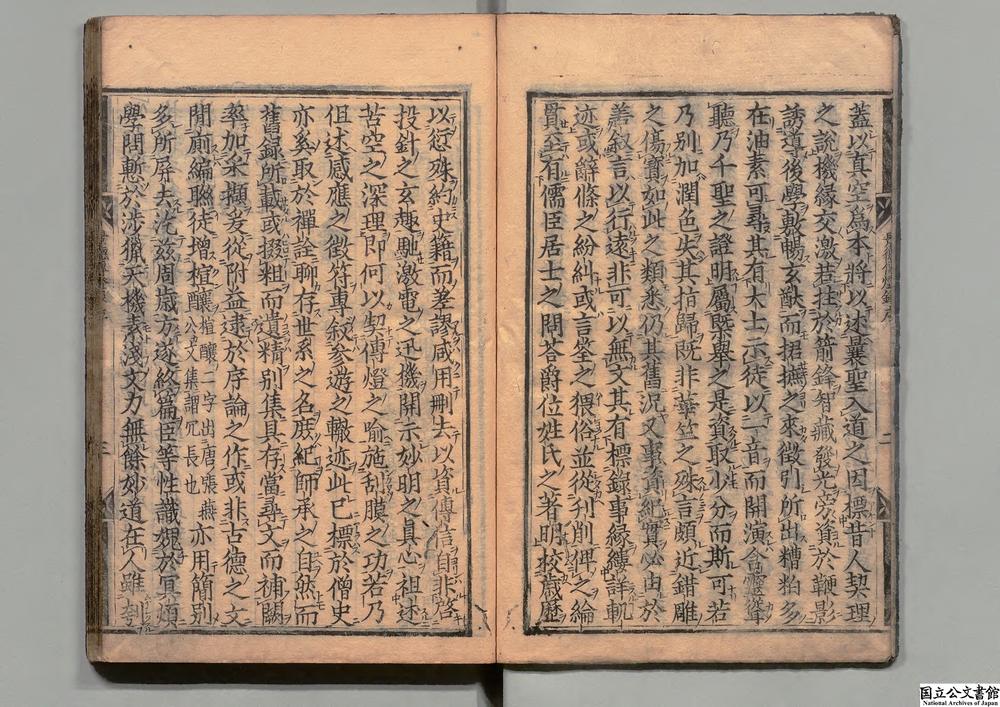 蓋以真空爲本將以述曩聖入道之因標昔人契理
之說機緣交激若拄於箭鋒智藏發光旁資於鞭影
誘道後學敷暢玄猷而捃摭之來徵引所出糟粕多
在油素可尋其有大士示徒以一音而開演含靈聳
聽乃千聖之證明屬槩舉之是資取少分而斯可若
乃別加潤色失其指歸既非華竺之殊言頗近錯雕
之傷寶如此之類悉仍其舊況又事資紀實必由於
善叙言以行遠非可以無文其有標錄事緣縷詳軌
迹或辭條之紛糾或言筌之猥俗並從刋削俾之綸
貫至有儒臣居士之問答爵位姓氏之著明校歲歷
以愆殊約史籍而差謬咸用刪去以資傳信自非啓
投針之玄趣馳激電之迅機開示妙明之真心祖述
苦空之深理即何以契傳燈之喻施刮膜之功若乃
但述感應之徵符專叙參遊之轍迹此已標於僧史
亦奚取於禪詮聊存世系之名庶紀師承之自然而
舊錄所載或掇粗而遺精別集具存當尋文而補闕
率加采擷爰從附益逮於序論之作或非古德之文
間廁編聯徒增楦釀楦釀二字出唐張燕公文集謂冗長也亦用簡別
多所屏去汔茲周歲方遂終篇臣等性識媿於冥煩
學問慙於涉獵天機素淺文力無餘妙道在人雖刳
二
三
国立公文書館
National Archives of Japan